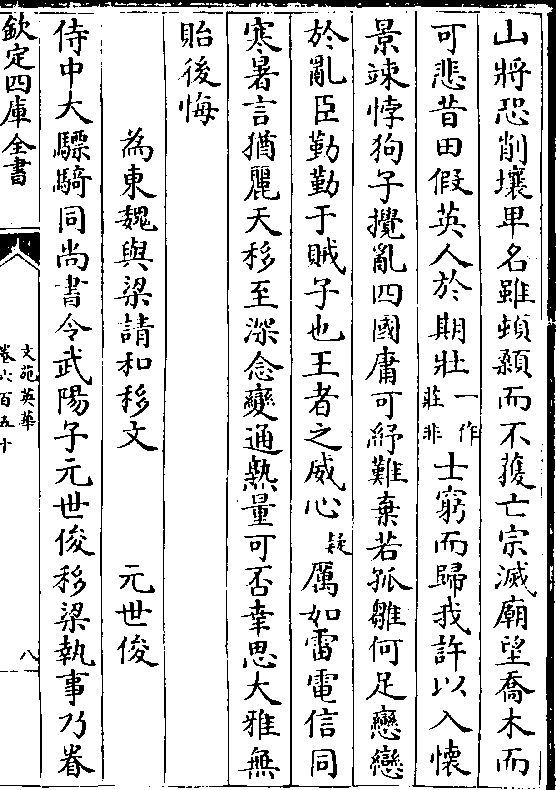 山將恐削壤卑名雖頓顙而不獲亡宗滅廟望喬木而
可悲昔田假英人於期壯一作莊非士窮而歸我許以入懷
景竦悖狗子攪亂四國庸可紓難棄若孤雛何足戀戀
於亂臣勤勤于賊子也王者之威心疑厲如雷電信同
寒暑言猶麗天移至深念變通熟量可否幸思大雅無
貽後悔
為東魏與梁請和移文 元世俊
侍中大驃騎同尚書令武陽子元世俊移梁執事乃眷
欽定四庫全書
文苑英華
卷六百五十
八